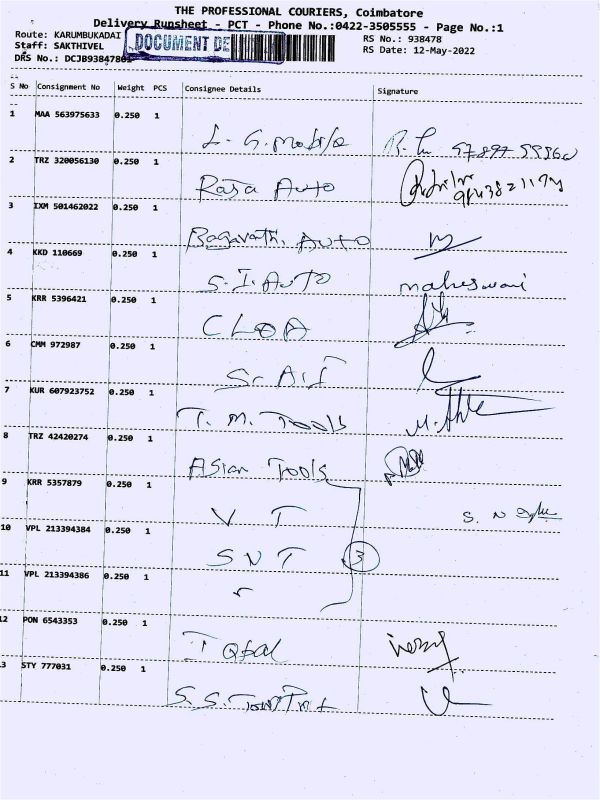 THE PROFESSIONAL COURIERS, Coimbatore
Delivery Runsheet - PCT - Phone No.:0422-3505555 - Page No.:1
Route: KARUMBUKADAI
RS No.: 938478
Staff: SAKTHIVEL
DOCUMENT DE
RS Date: 12-May-2022
DRS No.: DCJB9384780
S No Consignment No Weight PCS Consignee Details Signature
1 MAA 563975633 0.250 1
L. G. mobile
2 TRZ 320056130 0.250 1
Raja Auto
3 IXM 501462022 0.250 1
Bagavathi. Auto
4 KKD 110669 0.250 1
S. I. Auto maheswari
5 KRR 5396421 0.250 1
CLOA
6 CMM 972987 0.250 1
7 KUR 607923752 0.250 1
T. M. Tools
8 TRZ 42420274 0.250 1
Asian Tools
9 KRR 5357879 0.250 1
V T
10 VPL 213394384 0.250 1
SNT 3
11 VPL 213394386 0.250 1
12 PON 6543353 0.250 1
Iqbal
13 STY 777031 0.250 1
S. S.